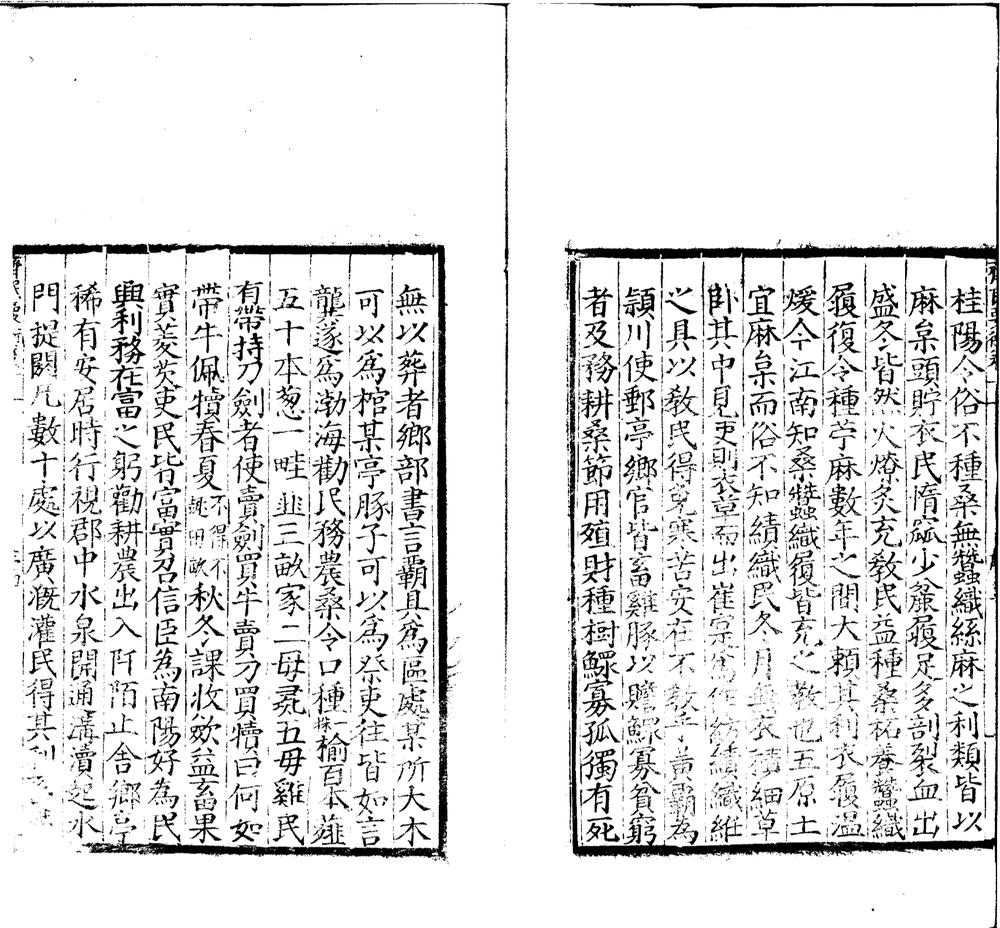 桂陽令俗不種桑無蠶織絲麻之利類皆以
麻枲頭貯衣民惰窳少麤履足多剖裂血出
盛冬皆然火燎炙充敎民益種桑柘養蠶織
履復令種苧麻數年之間大賴其利衣履温
煖今江南知桑蠶織履皆充之敎也五原土
宜麻枲而俗不知績織民冬月無衣積細草
卧其中見吏則衣草而出崔寔爲作紡績織絍
之具以敎民得免寒苦安在不敎乎黄霸為
頴川使郵亭鄉官皆畜雞豚以贍鰥寡貧窮
者及務耕桑節用殖財種樹鰥寡孤獨有死
無以葬者鄉部書言霸具爲區處某所大木
可以爲棺某亭豚子可以爲祭吏往皆如言
龔遂爲渤海勸民務農桑令口種一株榆百本薤
五十本葱一畦韭三畝家二母彘五母雞民
有帶持刀劍者使賣劍買牛賣刀買犢曰何如
帶牛佩犢春夏不得不趣田畝秋冬課收斂益畜果
實菱芡吏民皆富實召信臣為南陽好為民
興利務在富之躬勸耕農出入阡陌止舍鄉亭
稀有安居時行視郡中水泉開通溝瀆起水
門提閼凡數十處以廣溉灌民得其利